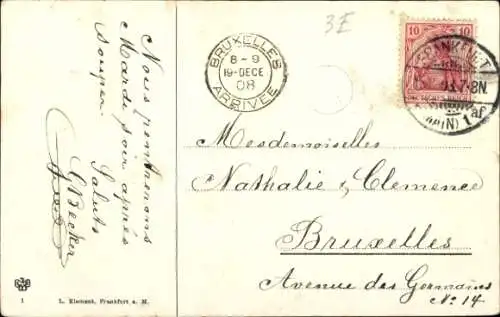 Nous
Mardi soir après
souper
Saluts
G Becker
3E
BRUXELLES
8-9
19-DECE
08
ARRIVEE
10 10
FRANKFURT
7-8N.
(MAIN) 1 af
Mesdemoiselles
Nathalie & Clemence
Bruxelles
Avenue des Germains
No. 14
1
L. Klement, Frankfurt a. M.